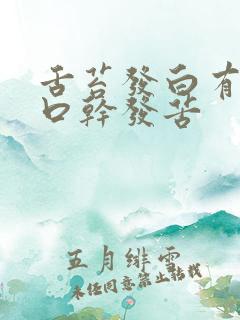 舌苔發白有
口幹發苦
五月緋雲
未任同意禁止轉載